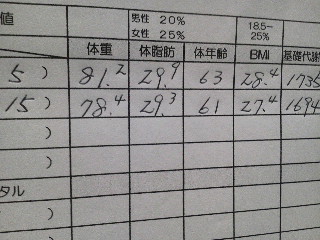 値 男性 20% 18.5~
女性 25% 25%
体重 体脂肪 体年齢 BMI 基礎代謝
5 ) 81.2 29.9 63 28.4 1735
15 ) 78.4 29.3 61 27.4 1694
)
)
タル
( )
( )